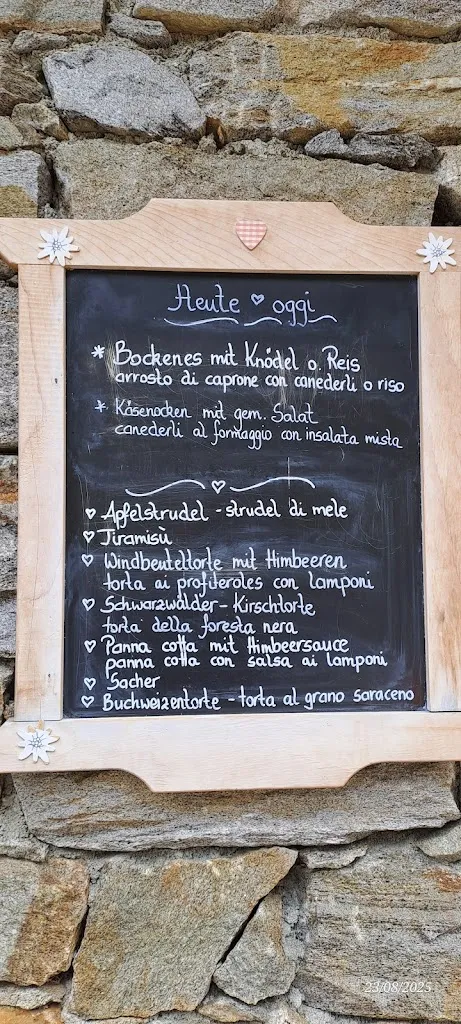 Heute ♡ oggi
* Bockenes mit Knödel o. Reis
arrosto di caprone con canederli o riso
* Käsenocken mit gem. Salat
canederli al formaggio con insalata mista
♡ Apfelstrudel - strudel di mele
♡ Tiramisù
♡ Windbeuteltorte mit Himbeeren
torta ai profiteroles con lamponi
♡ Schwarzwälder - Kirschtorte
torta della foresta nera
♡ Panna cotta mit Himbeersauce
panna cotta con salsa ai lamponi
♡ Sacher
♡ Buchweizentorte - torta al grano saraceno
23/08/2025